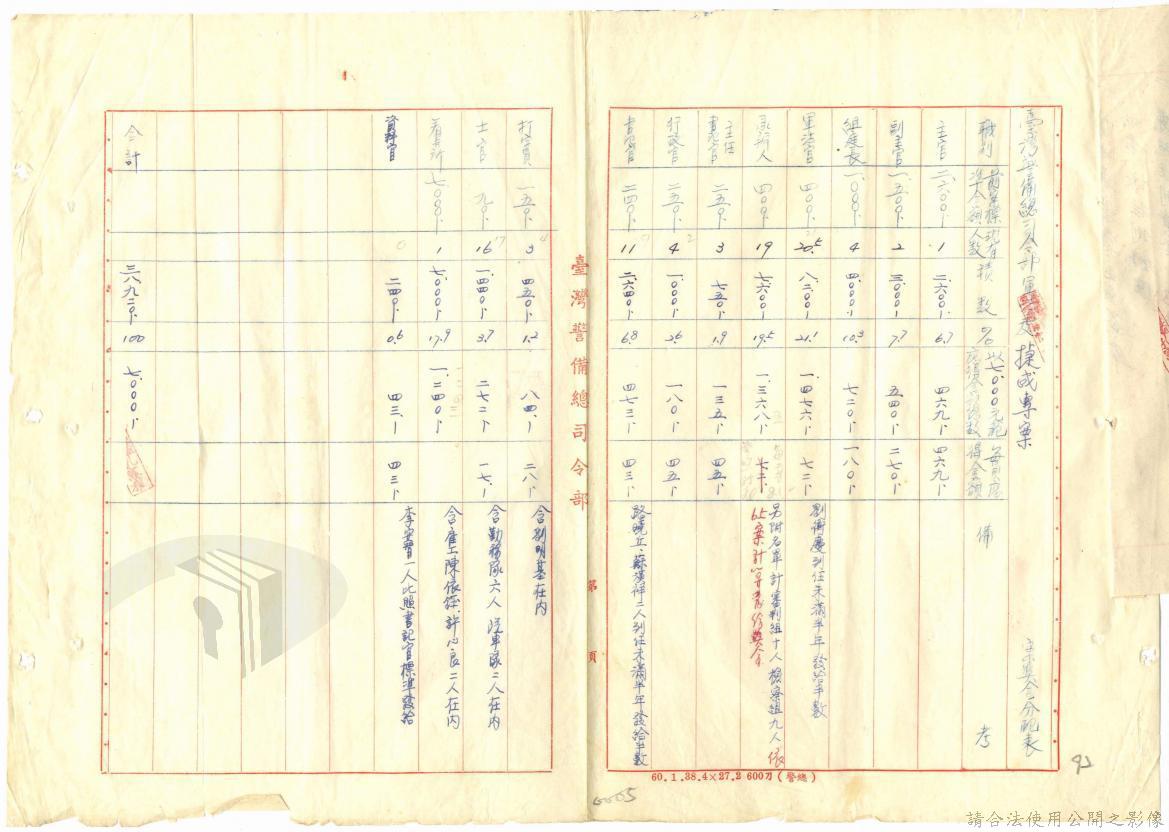 臺灣警備總司令部軍法處捷成專案
案獎金分配表
職別
前呈標準金額
現有人數
積數
%
以7.000元範圍
每員應得金額
備考
主官 二.六〇〇 1 二.六〇〇 6.7 四六九 四六九
副主官 一.五〇〇 2 三.〇〇〇 7.7 五四〇 二七〇
組庭長 一.〇〇〇 4 四.〇〇〇 10.3 七二〇 一八〇
軍法官 四〇〇 20.5 八.二〇〇 21.1 一.四七六 七二 劉衛慶到任未滿半年發給半數
承辦人 四〇〇 19 七.六〇〇 19.5 一.三六八 七二 另附名單計審判組十人檢察組九人依
65案計算常份獎金
主任書記官 二五〇 3 七五〇 1.9 一三五 四五
行政官 二五〇 4 一.〇〇〇 2.6 一八〇 四五
書記官 二四〇 11 二.六四〇 6.8 四七三 四三 二人到任未滿半年發給半數
臺灣警備總司令部
第 頁
打字員 一五〇 3 四五〇 1.2 八四 二八 含劉明基在內
士官 九〇 16 一.四四〇 3.7 二七二 一七 含勤務隊六人汽車隊二人在內
看守所 七.〇〇〇 1 七.〇〇〇 17.9 一.二四〇 含雇工陳依 許心良二人在內
資料官 二四〇 0.6 四三 四三 一人比照書記官標準發給
合計 三八.九二〇 100 七.〇〇〇
60.1.38.4×27.2 600刀(警總)
0005
92
請合法使用公開之影像